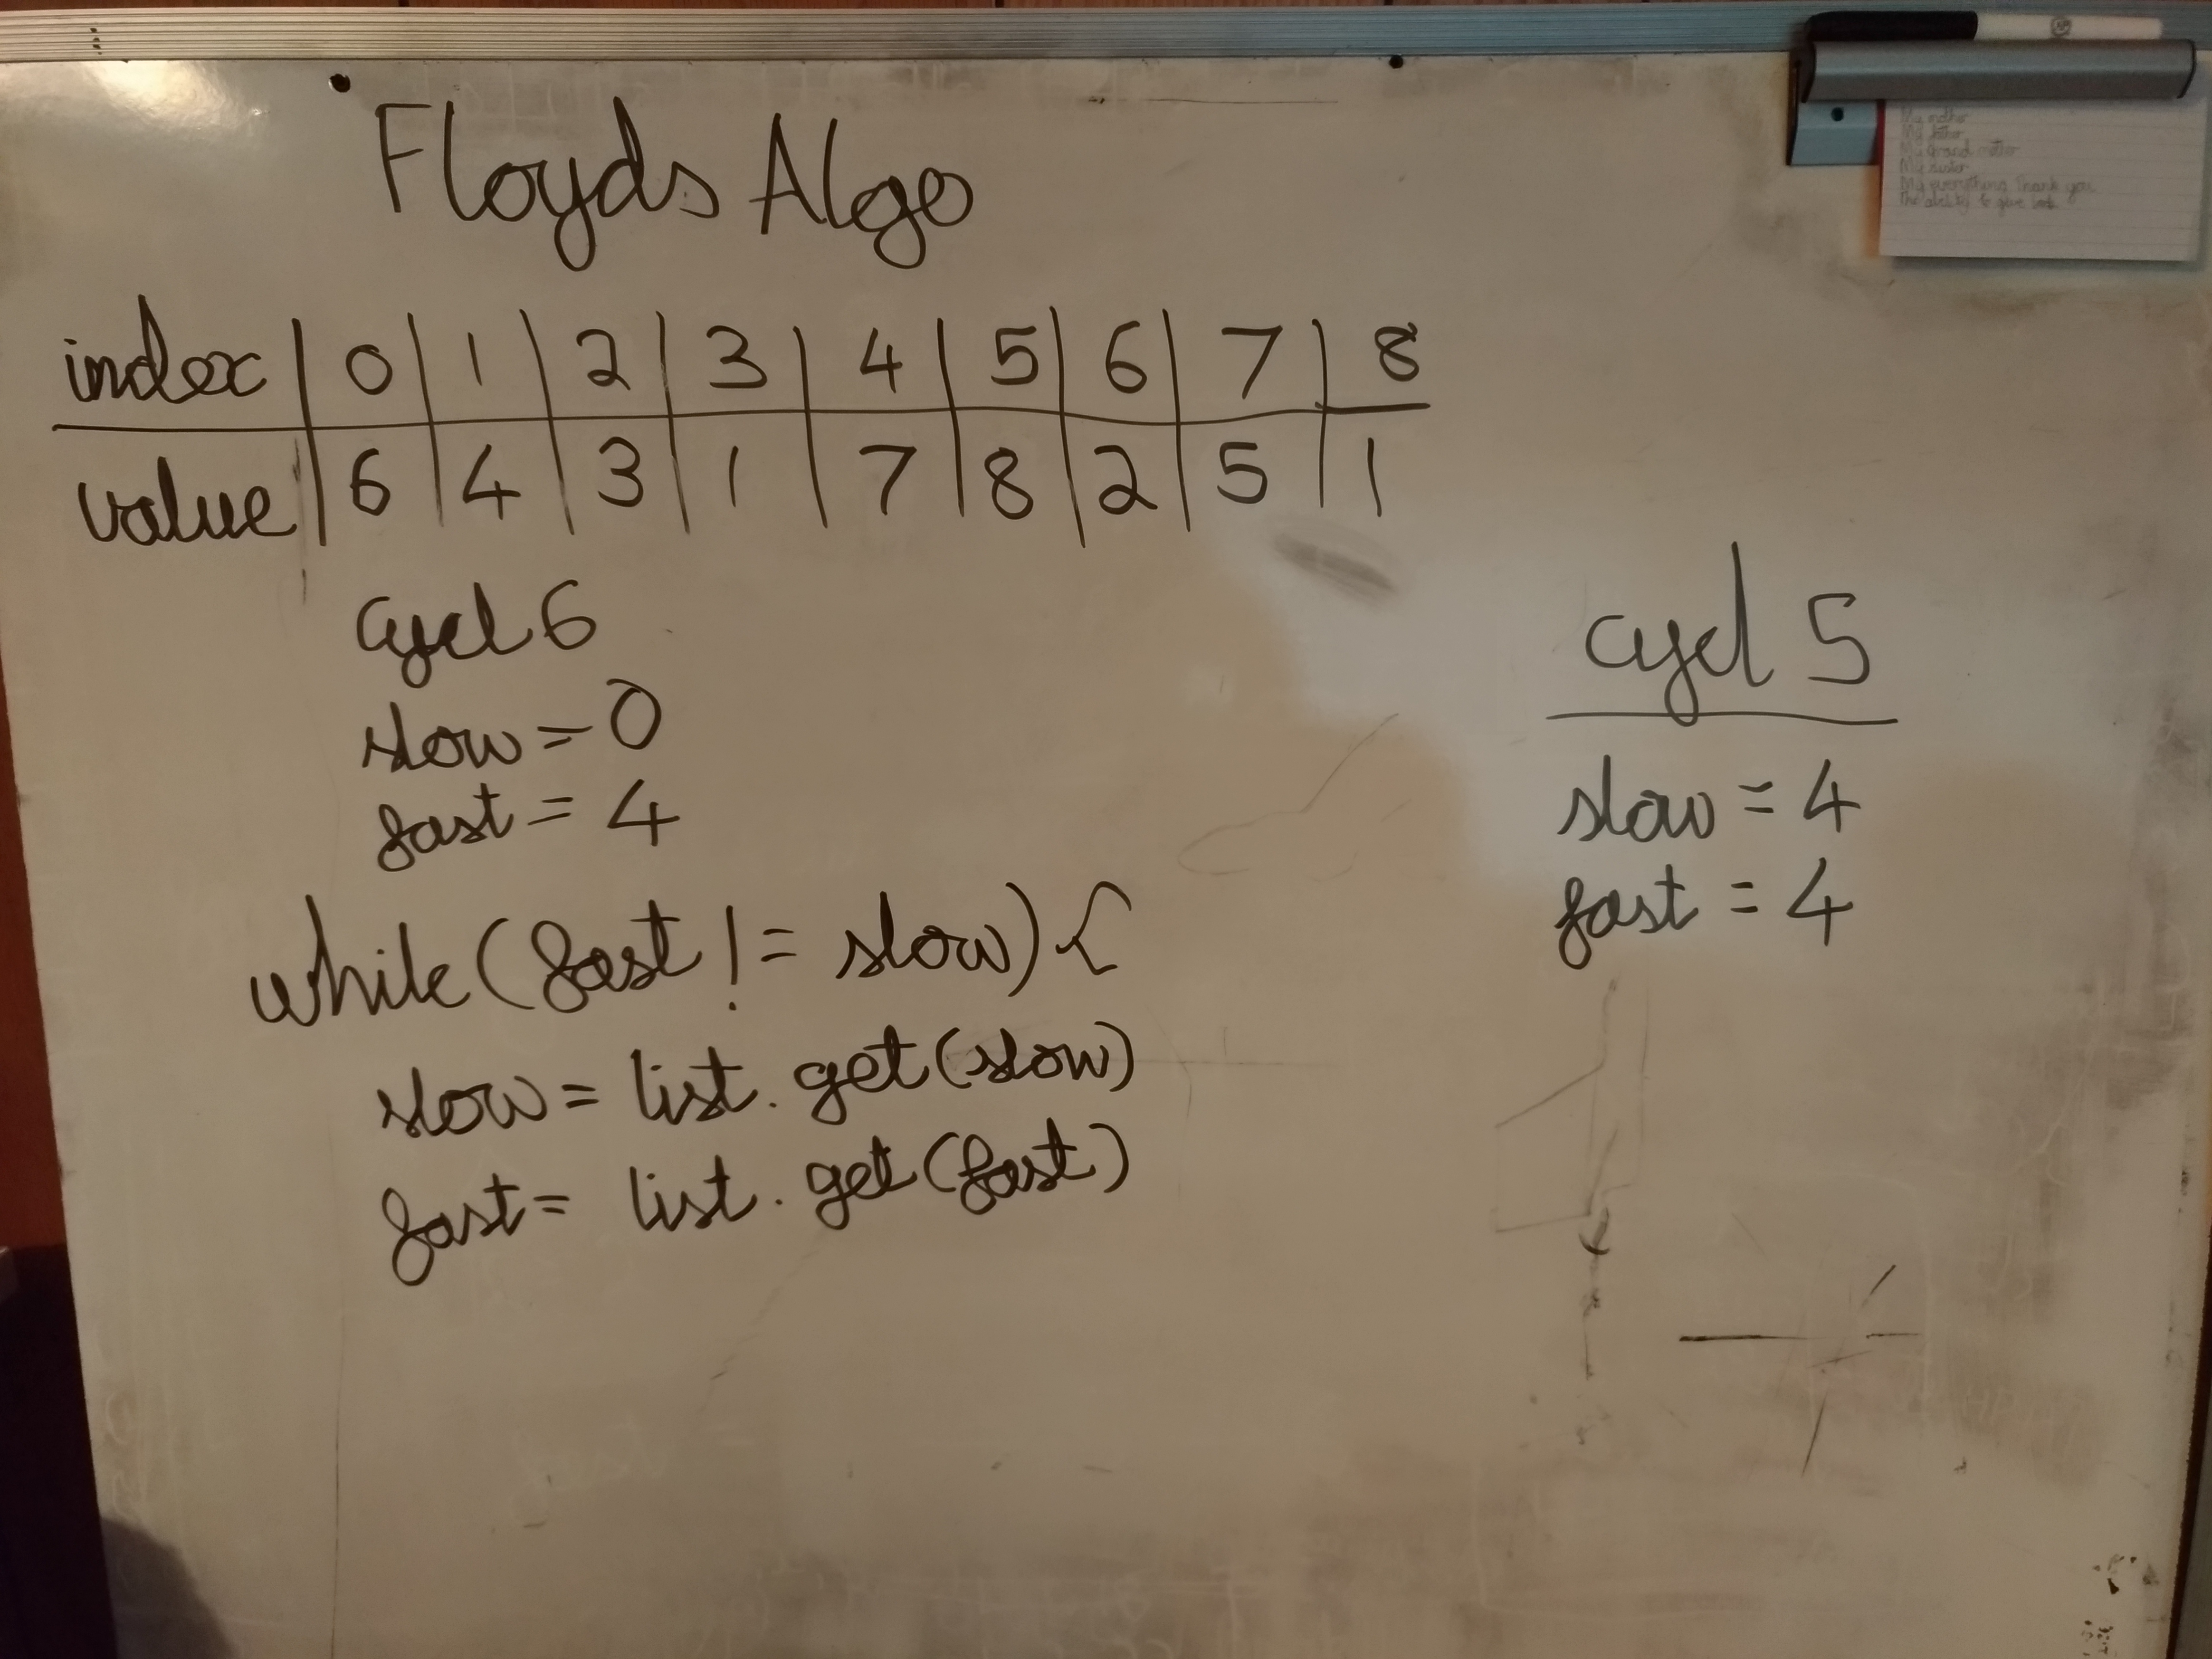 Floyds Algo
index | 0 | 1 | 2 | 3 | 4 | 5 | 6 | 7 | 8
value | 6 | 4 | 3 | 1 | 7 | 8 | 2 | 5 | 1
Cycl 6
slow = 0
fast = 4
while (fast != slow) {
slow = list.get(slow)
fast = list.get(fast)
cycl 5
slow = 4
fast = 4
My mother
My father
My grand mother
My sister
My everything Thank you
The ability to give